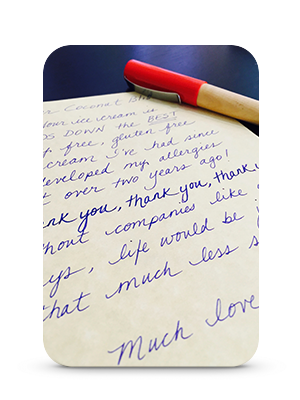 Coconut Bliss
Your ice cream is
DS DOWN the BEST
t free, gluten free
cream I've had since
developed my allergies
t over two years ago!
nk you, thank you, thank y
thout companies like
ys, life would be
that much less s
Much love